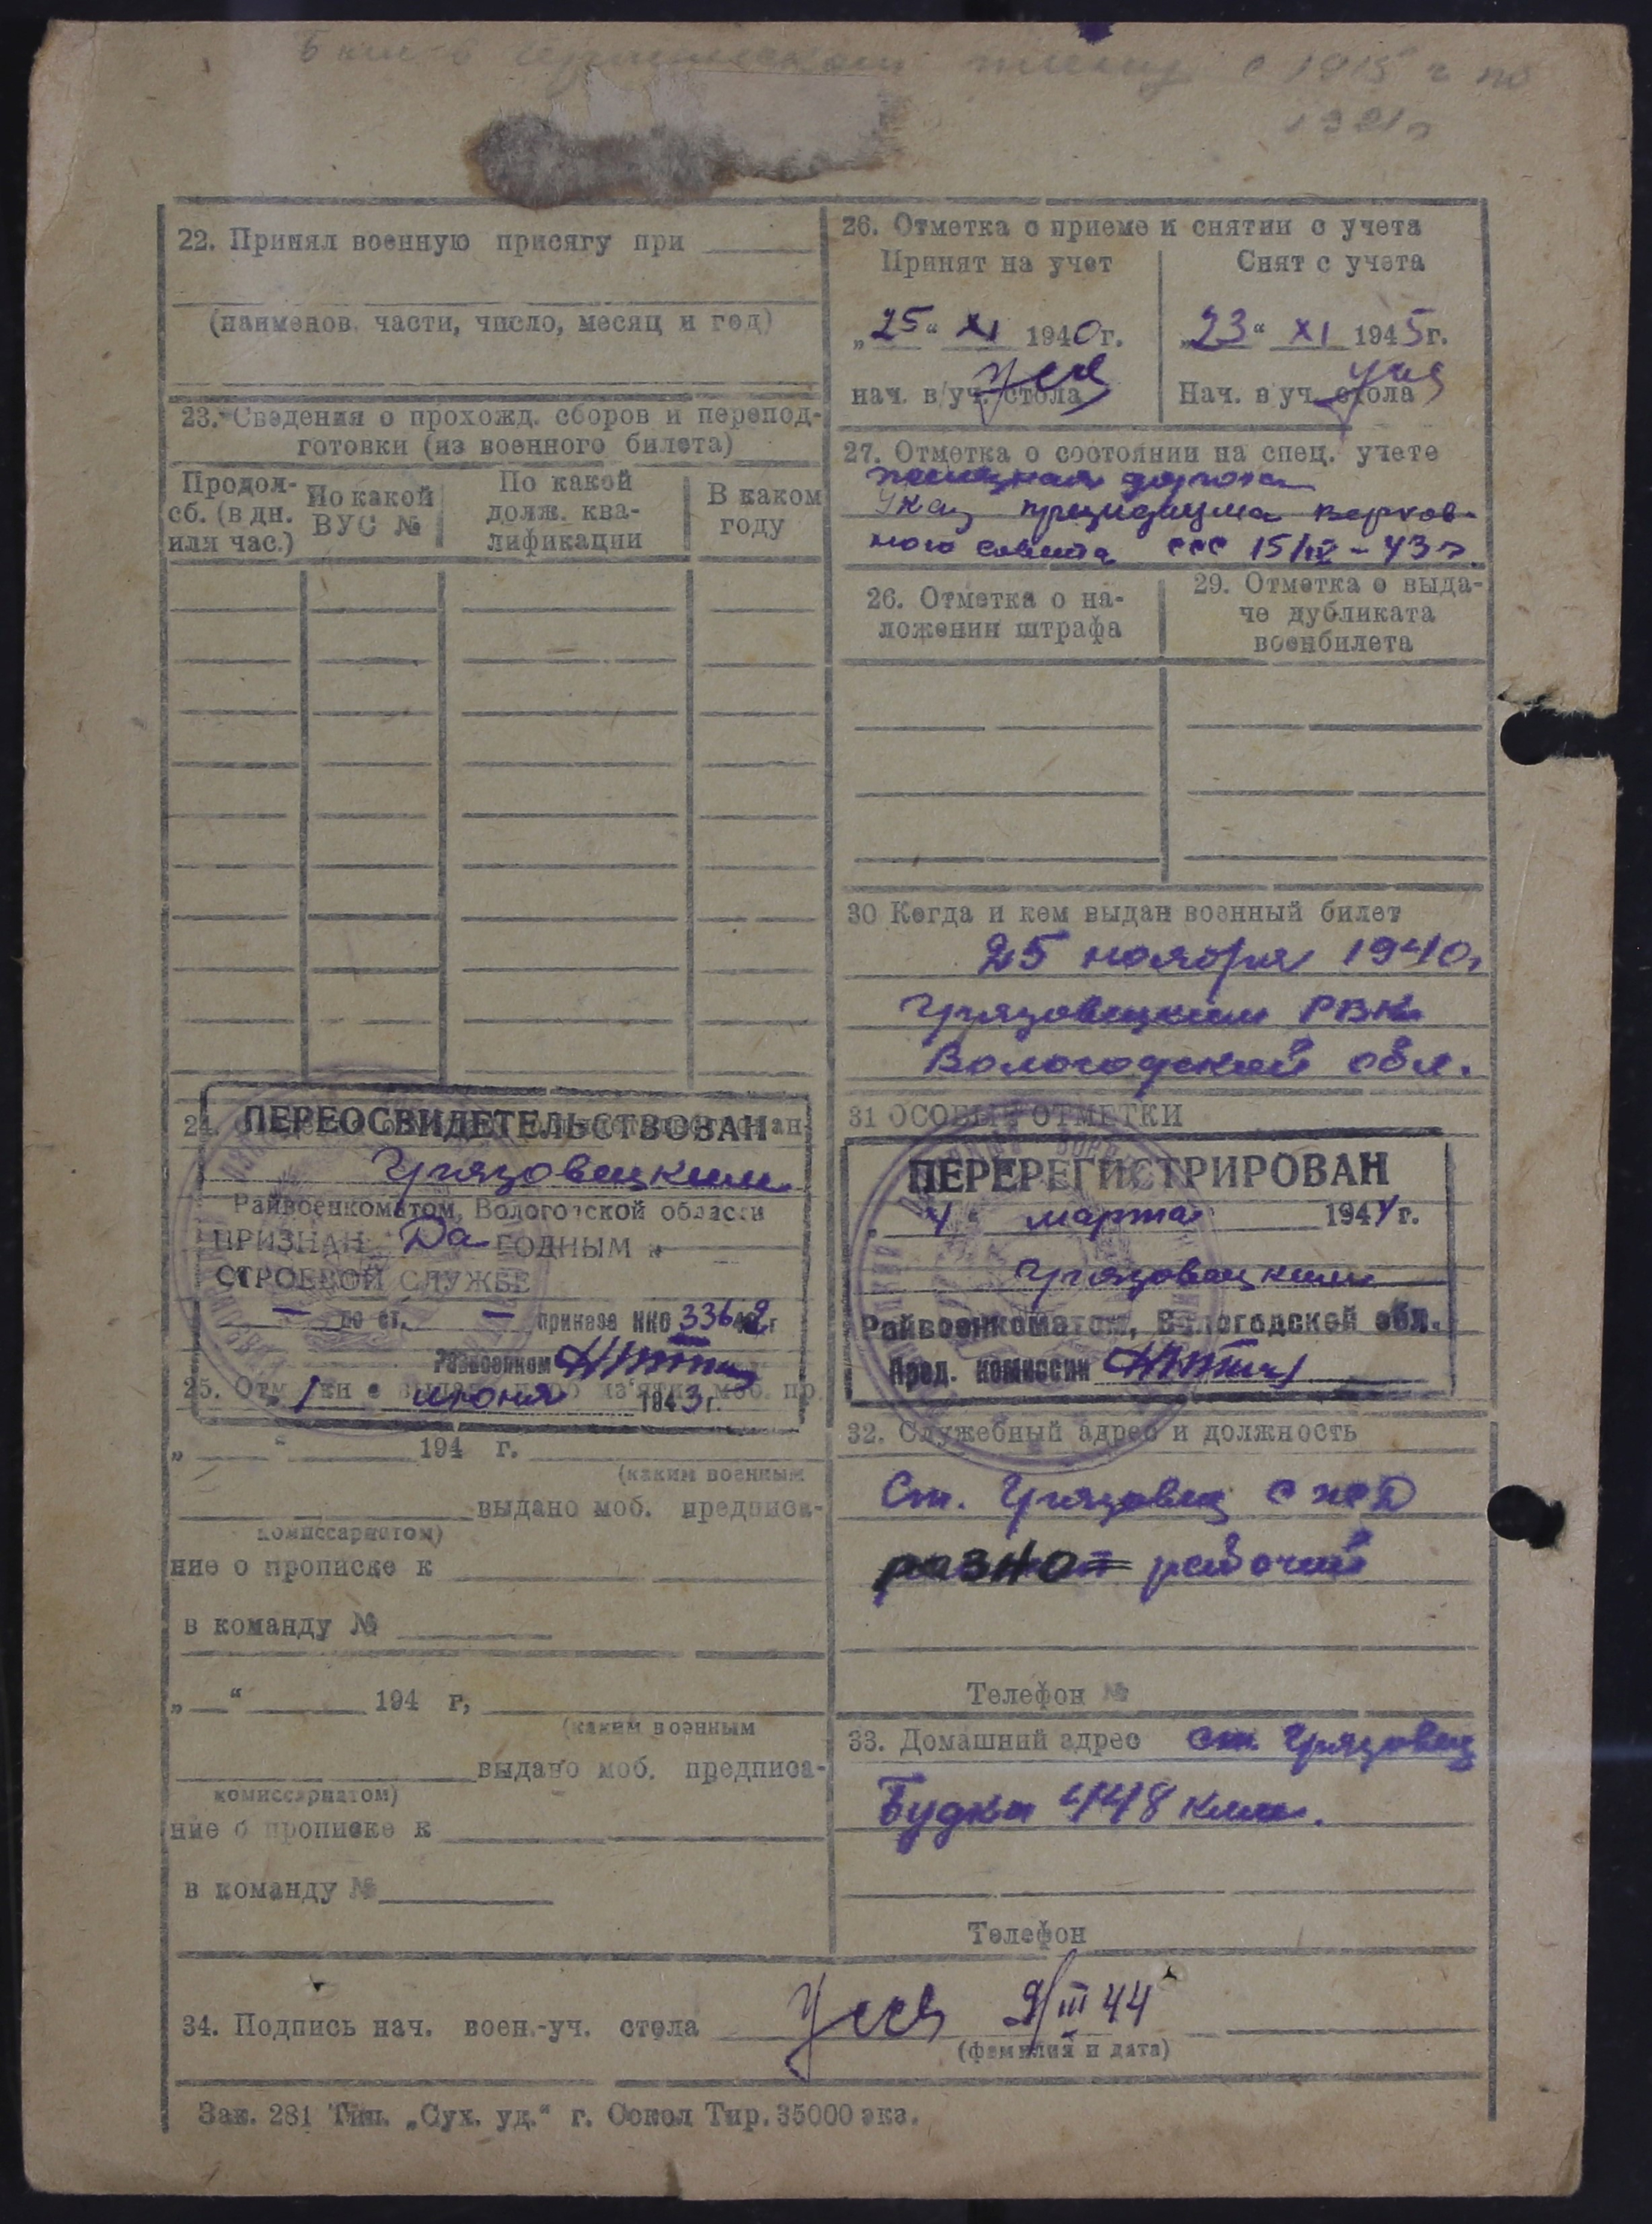 Был в германском плену с 1915 г по
1921г
22. Принял военную присягу при
(наименов. части, число, месяц и год)
23. Сведения о прохожд. сборов и перепод-
готовки (из военного билета)
Продол-
сб. (в дн.
или час.)
По какой
ВУС №
По какой
долж. ква-
лификации
В каком
году
ПЕРЕОСВИДЕТЕЛЬСТВОВАН
24.
Грязовецким
Райвоенкоматом, Вологодской области
ПРИЗНАН Да ГОДНЫМ к
СТРОЕВОЙ СЛУЖБЕ
— по ст. — приказа НКО 336 42 г
Райвоенком
25.
1 июня 1943 г.
„ “ 194 г.
(каким военным
выдано моб. предписа-
комиссариатом)
ние о прописке к
в команду №
„ “ 194 г,
(каким военным
выдано моб. предписа-
комиссариатом)
ние о прописке к
в команду №
26. Отметка о приеме и снятии с учета
Принят на учет
Снят с учета
„25“ XI 1940г.
„23“ XI 1945г.
нач. в/уч. стола
Нач. в уч. стола
27. Отметка о состоянии на спец. учете
дорога
Указ президиума верхов-
ного совета ССС 15/IV - 43г.
26. Отметка о на-
ложении штрафа
29. Отметка о выда-
че дубликата
военбилета
30 Когда и кем выдан военный билет
25 ноября 1940г
Грязовецким РВК
Вологодской обл.
31 ОСОБЫЕ ОТМЕТКИ
ПЕРЕРЕГИСТРИРОВАН
„4“ марта 1944 г.
Грязовецким
Райвоенкоматом, Вологодской обл.
Пред. комиссии
32. Служебный адрес и должность
Ст. Грязовец СЖД
рабочий
Телефон №
33. Домашний адрес ст. Грязовец
Будка 448 клм.
Телефон
34. Подпись нач. воен.-уч. стола
III 44
(фамилия и дата)
Зак. 281 Тип. „Сух. уд.“ г. Сокол Тир. 35000 экз.